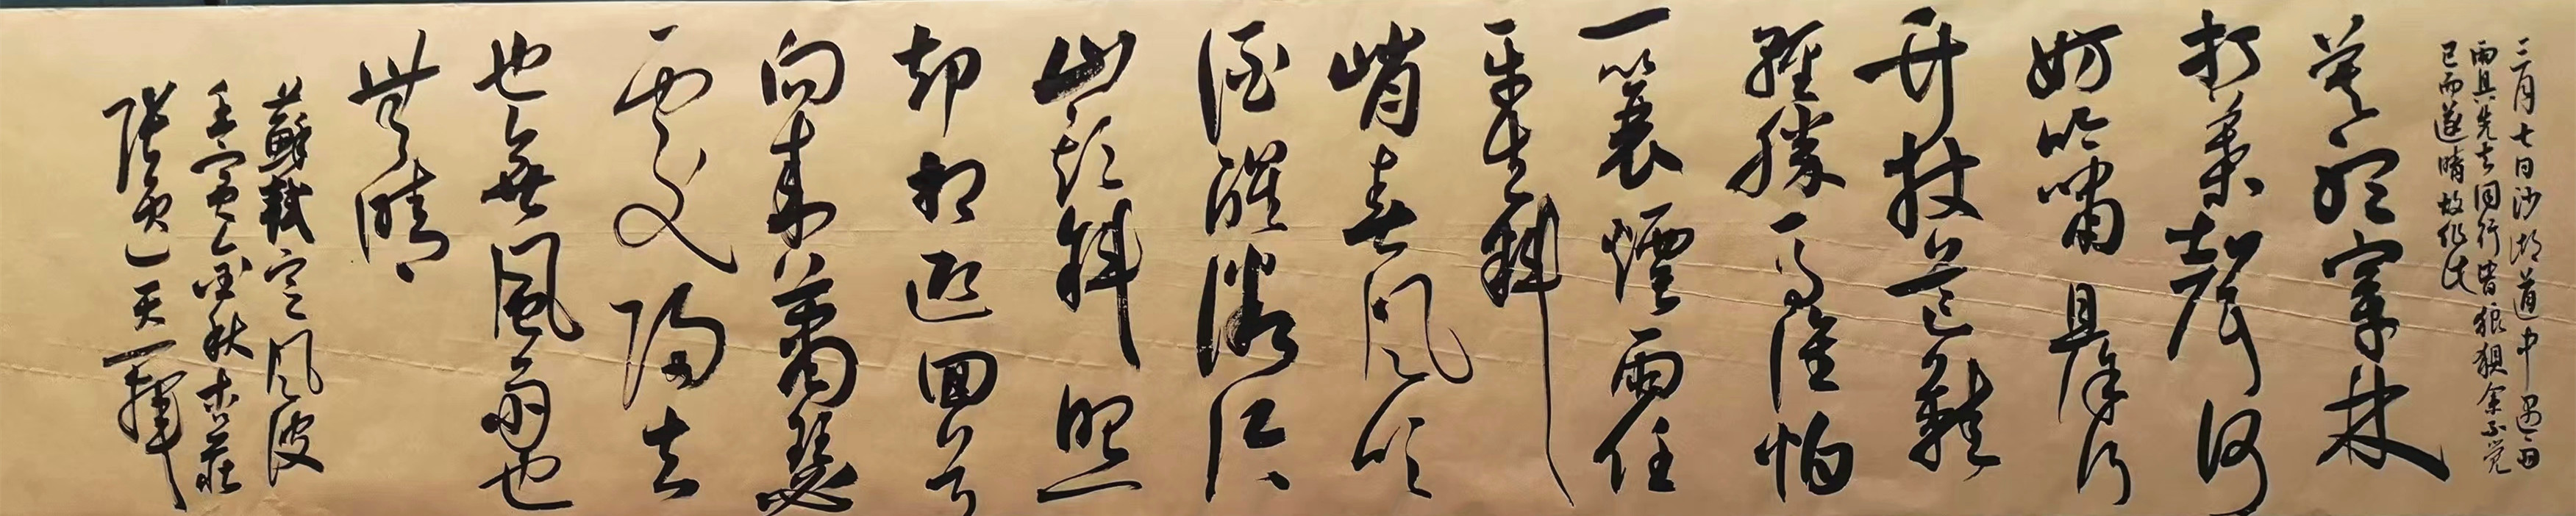 三月七日沙湖道中遇雨
雨具先去同行皆狼狽余不覺
已而遂晴故作此
莫聽穿林
打葉聲何
妨吟嘯且徐行
竹杖芒鞋
輕勝馬誰怕
一蓑煙雨任
平生料
峭春風吹
酒醒微冷
山頭斜照
却相迎回首
向來蕭瑟
處歸去
也無風雨也
無晴
蘇軾定風波
壬寅金秋古莊
張天一揮